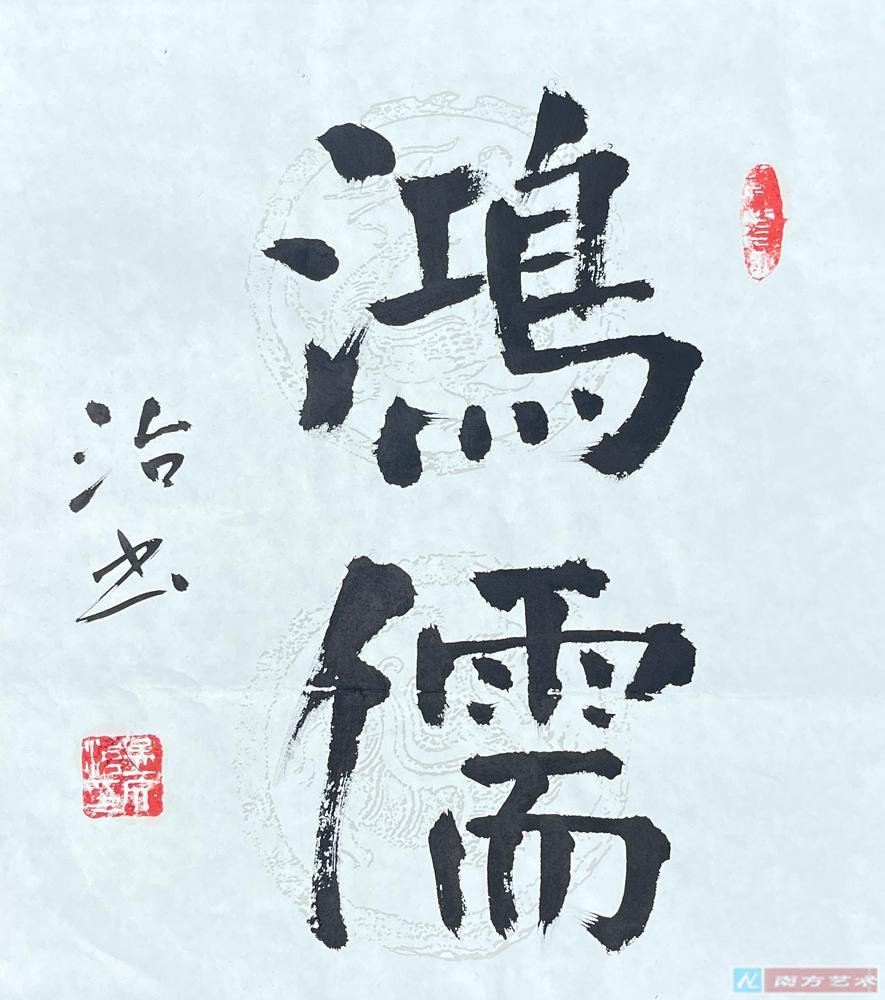 鴻
儒
治书
南方艺术